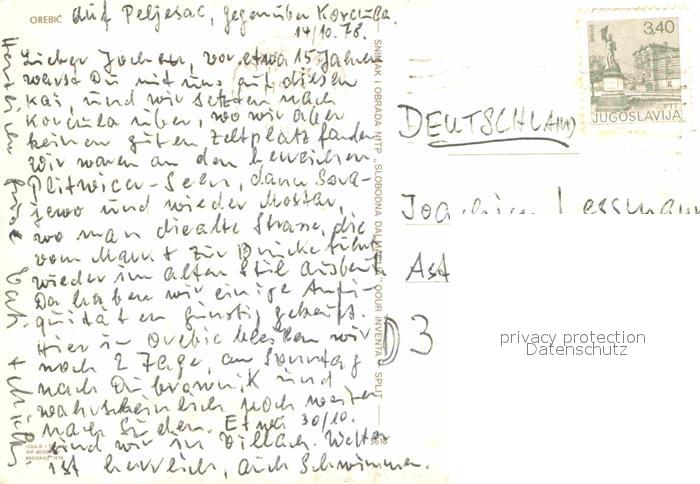 OREBIĆ
Auf Peljesac, gegenüber Korcula.
14/10.78.
Lieber Jochen, vor etwa 15 Jahren
warst Du mit uns auf diesen
Kai, und wir setzten nach
Korcula über, wo wir aber
keinen guten Zeltplatz fanden
Wir waren an den herrlichen
Plitwicer-Seen, dann Sara-
jewo und wieder Mostar,
wo man die alte Strasse, die
vom Markt zur Brücke führt
wieder im alten Stil ausbaut
Da haben wir einige Anti-
quitäten günstig gekauft.
Hier in Orebic bleiben wir
noch 2 Tage, am Sonntag
nach Dubrownik und
wahrscheinlich noch weiter
nach Süden. Etwa 30/10.
sind wir in Villach. Wetter
ist herrlich, auch Schwimmen.
Herzliche Grüsse
SNIMAK I OBRADA NITP „SLOBODNA DALMACIJA" OOUR INVENTA SPLIT
3618
IZDAJE I
BEOGRAD 1978
3,40
PTT
JUGOSLAVIJA
DEUTSCHLAND
Joachim Lessmann
Ast
D 3
privacy protection
Datenschutz